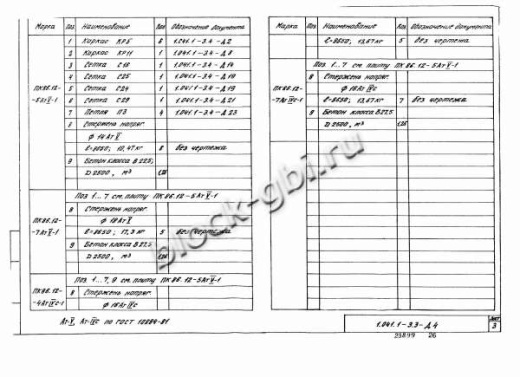 Марка Поз. Наименование Кол. Обозначение документа
1 Каркас КР5 2 1.041.1-3.4-Д2
2 Каркас КР11 1 1.041.1-3.4-Д8
3 Сетка С18 1 1.041.1-3.4-Д14
ПК86.12- 4 Сетка С25 1 1.041.1-3.4-Д19
-5АтV-1 5 Сетка С24 1 1.041.1-3.4-Д19
6 Сетка С29 1 1.041.1-3.4-Д21
7 Петля П3 4 1.041.1-3.4-Д23
8 Стержень напряг.
ф 14АтV
ℓ=8650; 10,47 кг 8 без чертежа
9 Бетон класса В22,5,
D 2500, м³
Поз. 1...7 см. плиту ПК86.12-5АтV-1
ПК86.12- 8 Стержень напряг.
-7АтV-1 ф 18АтV
ℓ=8650; 17,3 кг 5 без чертежа
9 Бетон класса В27,5
D 2500, м³
Поз. 1...7, 9 см. плиту ПК86.12-5АтV-1
ПК86.12- 8 Стержень напряг.
-4АтIVс-1 ф 16АтIVс
АтV, АтIVс по ГОСТ 10884-81
Марка Поз. Наименование Кол. Обозначение документа
ℓ=8650; 13,67 кг 5 без чертежа
Поз. 1...7 см. плиту ПК86.12-5АтV-1
ПК86.12- 8 Стержень напряг.
-7АтIVс-1 ф 16АтIVс
ℓ=8650; 13,67 кг 7 без чертежа
9 Бетон класса В27,5
D 2500, м³
block-gbi.ru
1.041.1-3.3-Д4
Лист
3
25899 26